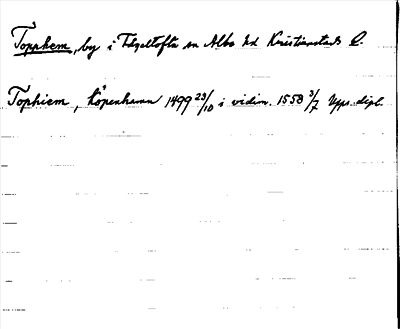 Topphem, by i Fågeltofta sn Albo hd Kristianstads l.
Tophiem, Köpenhamn 1499 23/10 i vidim. 1558 3/7 Upps. dipl.